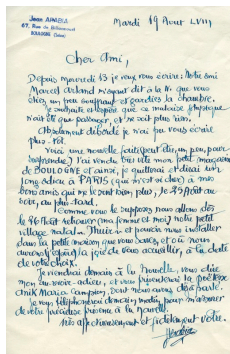 Jean APARSA
67, Rue de Billancourt
BOULOGNE (Seine)
Mardi 19 Aout LVIII
Cher Ami,
Depuis Mercredi 13 je veux vous écrire : Notre ami
Marcel Arland m'ayant dit à la N. que vous
étiez un peu souffrant et gardiez la chambre.
Je souhaite et espère que ce malaise physique
n'ait été que passager, et ne soit plus rien.
Absolument débordé je n'ai pu vous écrire
plus tôt.
Voici une nouvelle (qui peut être, un peu, pour
surprendre) J'ai vendu très vite mon petit magasin
de BOULOGNE et ainsi, je quitterai et dirai un
long adieu à PARIS (qui m'est si cher) à mes
bons amis qui me le sont bien plus, le 25 Août au
soir, au plus tard.
Comme vous le supposez nous allons dès
le 26 Août retrouver (ma femme et moi) notre petit
village natal Thuir et pouvoir nous installer
dans la petite maison que vous savez, et où nous
aurons la joie de vous accueillir, à la date
de votre choix.
Je viendrai demain à la Nouvelle, vous dire
mon au-revoir-adieu, et vous présenterai la poétesse
Marie Campion, dont nous avons déjà parlé.
Je vous téléphonerai demain matin, pour m'assurer
de votre précieuse présence à la
Bien affectueusement et fidèlement vôtre.